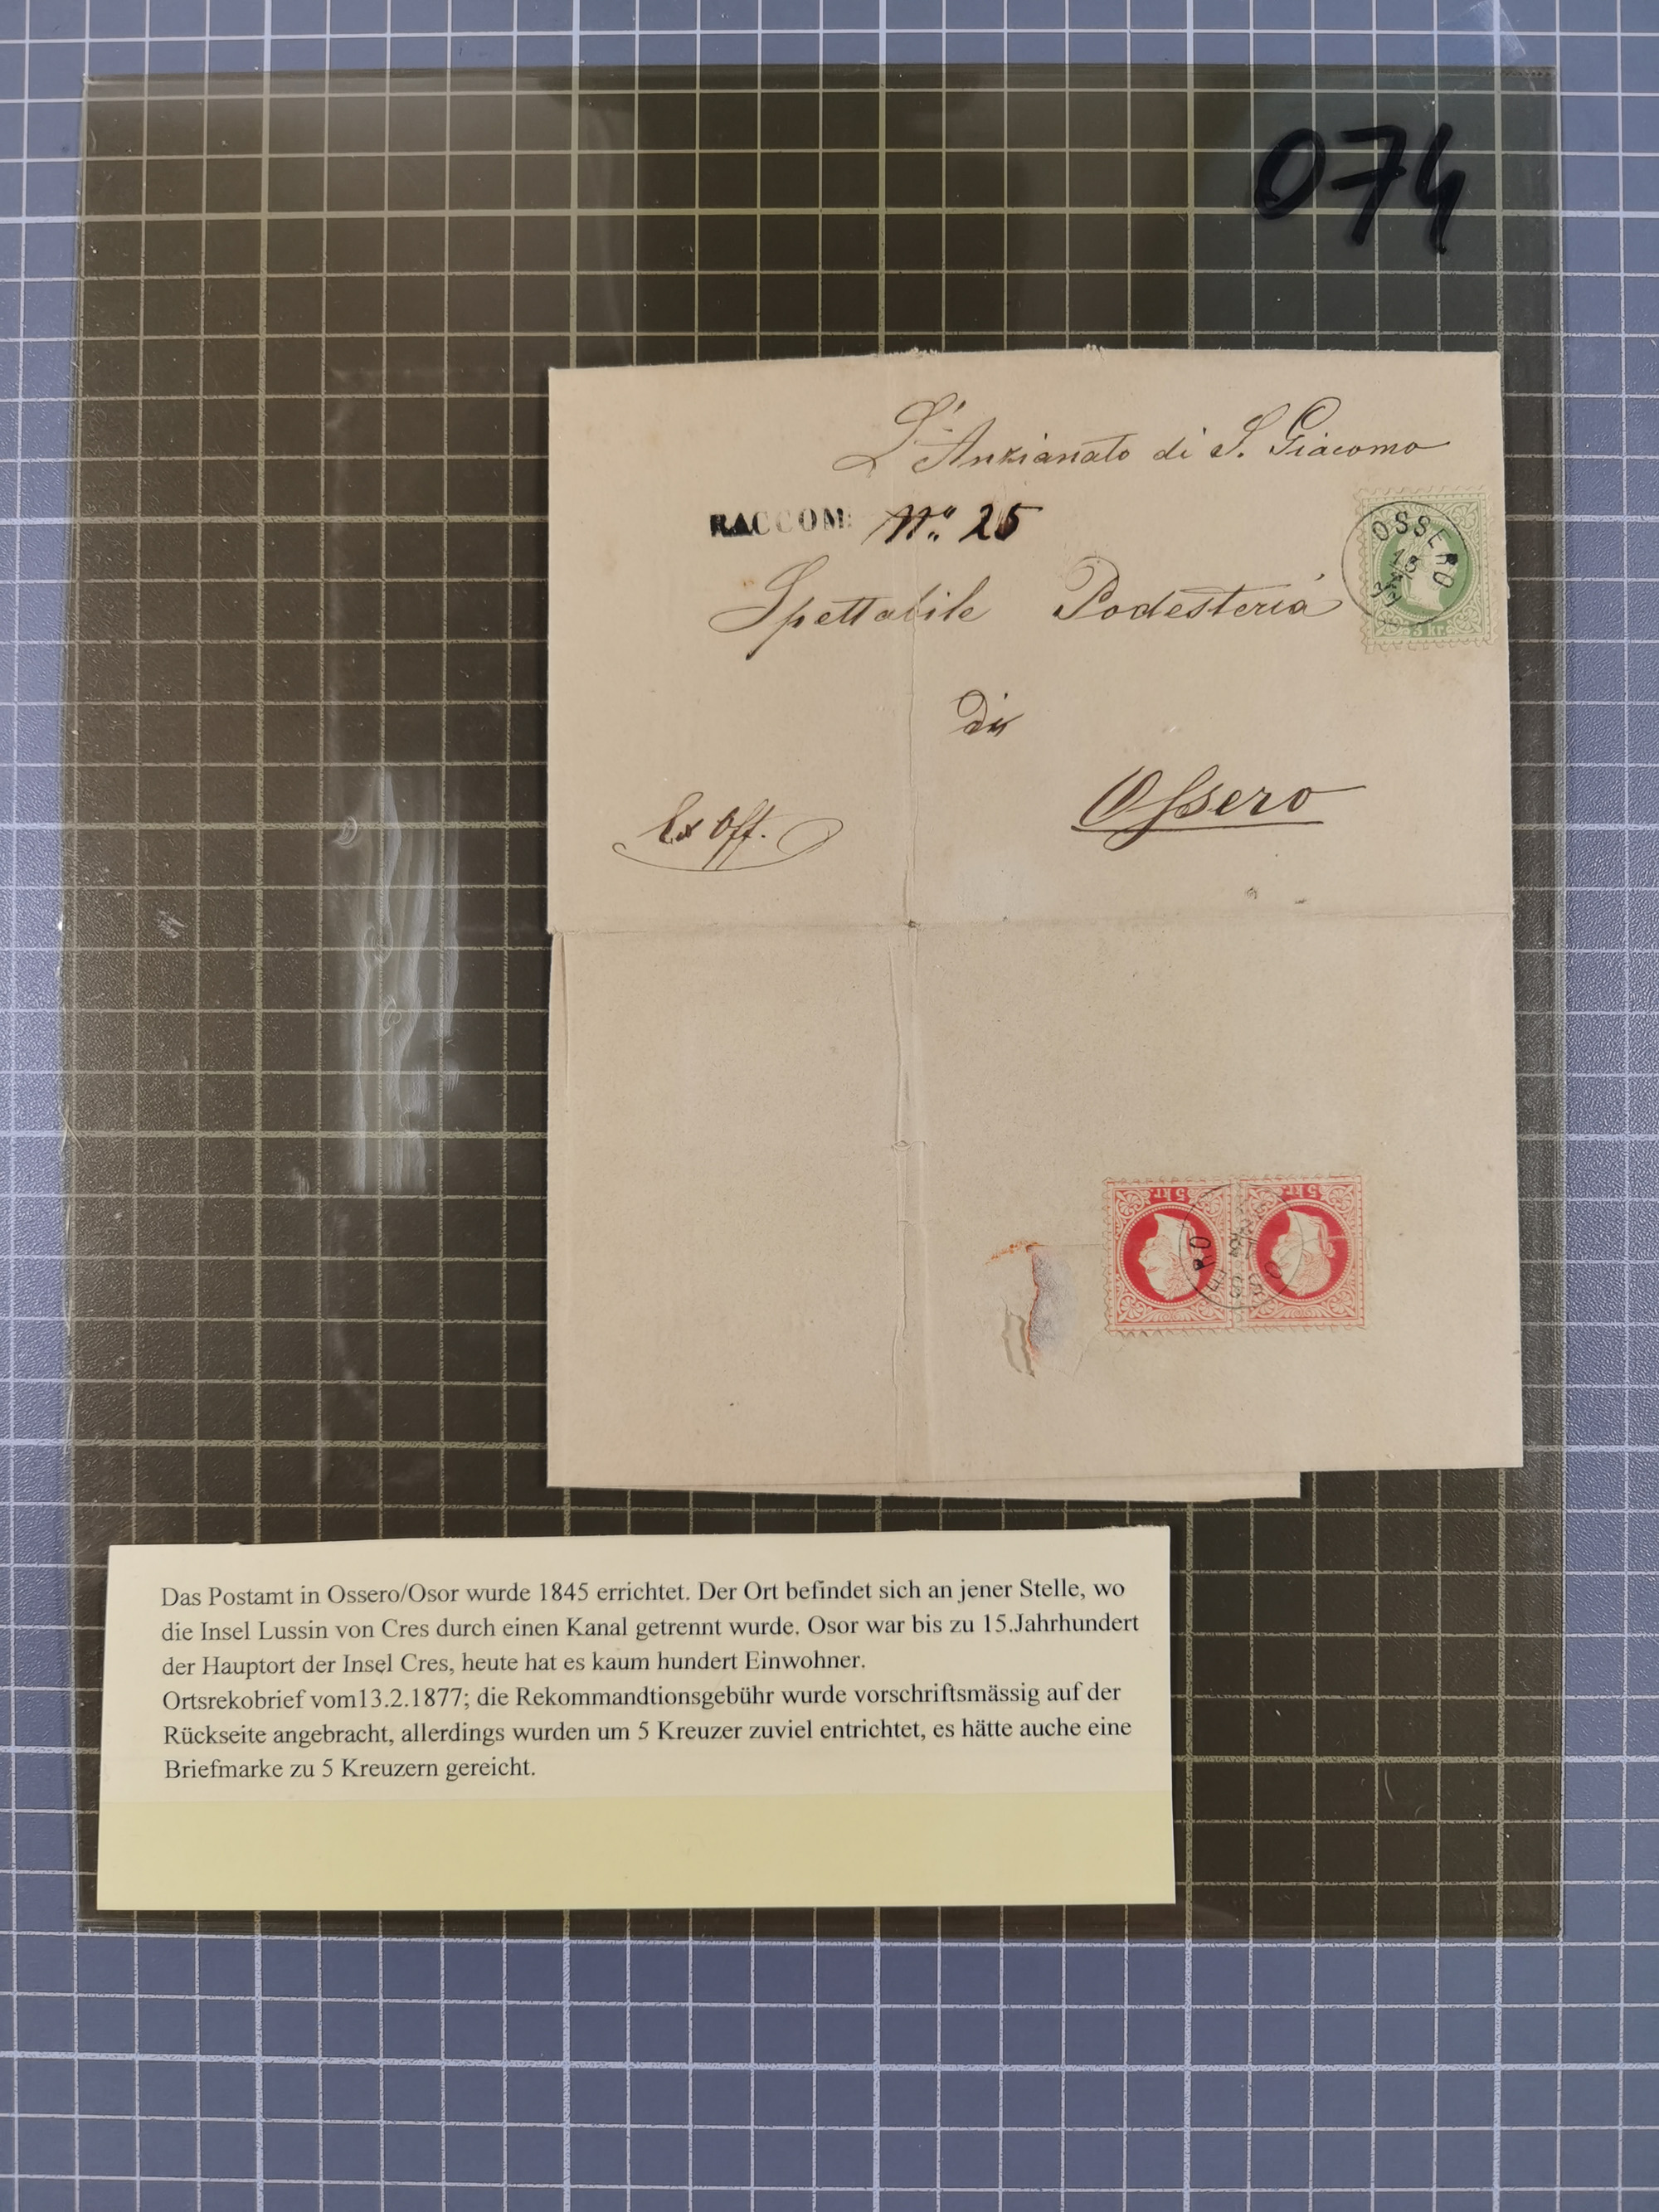 074
L'Anzianato di S. Giacomo
RACCOM: N.° 25
OSSERO
13
3 kr.
Spettabile Podesteria
di
Ossero
Ex Off.
5 kr. 5 kr.
OSSERO
Das Postamt in Ossero/Osor wurde 1845 errichtet. Der Ort befindet sich an jener Stelle, wo
die Insel Lussin von Cres durch einen Kanal getrennt wurde. Osor war bis zu 15.Jahrhundert
der Hauptort der Insel Cres, heute hat es kaum hundert Einwohner.
Ortsrekobrief vom13.2.1877; die Rekommandtionsgebühr wurde vorschriftsmässig auf der
Rückseite angebracht, allerdings wurden um 5 Kreuzer zuviel entrichtet, es hätte auche eine
Briefmarke zu 5 Kreuzern gereicht.